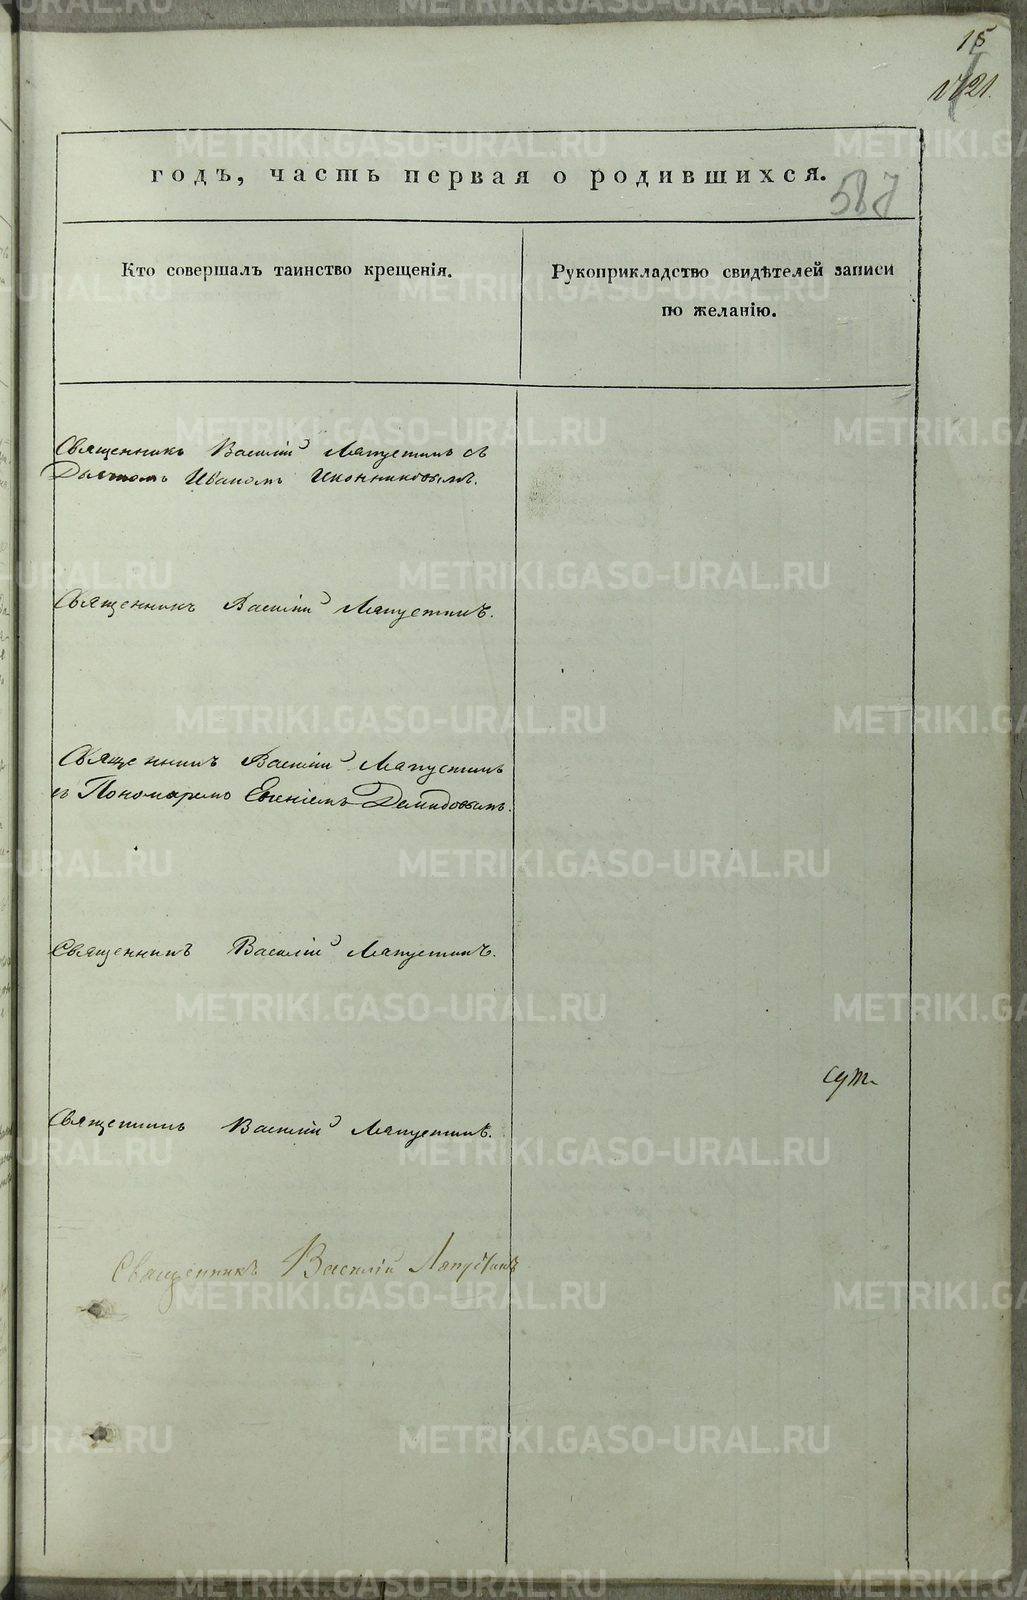 15
1721.
587
годъ, часть первая о родившихся.
Кто совершалъ таинство крещенія.
Рукоприкладство свидѣтелей записи
по желанію.
Священникъ Василій Лапустинъ съ
Дьячкомъ Иваномъ Иконниковымъ.
Священникъ Василій Лапустинъ.
Священникъ Василій Лапустинъ
съ Пономаремъ Евгеніемъ Демидовымъ.
Священникъ Василій Лапустинъ.
Священникъ Василій Лапустинъ.
Священникъ Василій Лапустинъ
METRIKI.GASO-URAL.RU